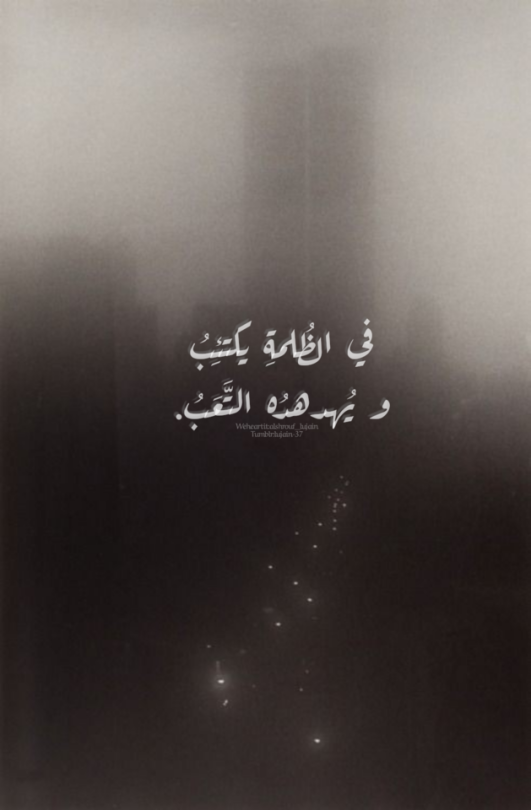 في الظُلمةِ يكتئِبُ
و يُهدهدُه التَّعَبُ.
Weheartit:alshrouf_lujain
Tumblr:lujain-37